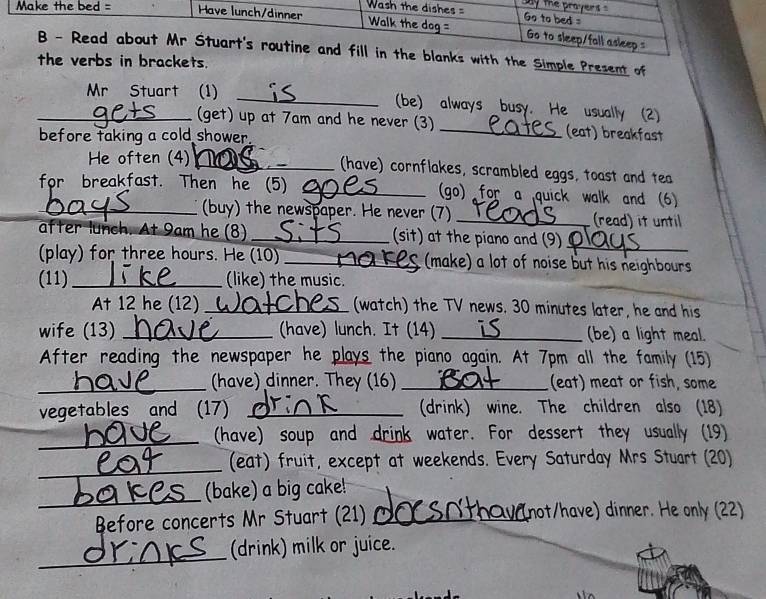 Make the bed = Have lunch/dinner Wash the dishes = Say the prayers =
Walk the dog = Go to bed =
Go to sleep/fall asleep =
B - Read about Mr Stuart's routine and fill in the blanks with the Simple Present of
the verbs in brackets.
Mr Stuart (1) is (be) always busy. He usually (2)
gets (get) up at 7am and he never (3) eates (eat) breakfast
before taking a cold shower.
He often (4) has (have) cornflakes, scrambled eggs, toast and tea
for breakfast. Then he (5) goes (go) for a quick walk and (6)
bays (buy) the newspaper. He never (7) reads (read) it until
after lunch. At 9am he (8) sits (sit) at the piano and (9) plays
(play) for three hours. He (10) makes (make) a lot of noise but his neighbours
(11) like (like) the music.
At 12 he (12) watches (watch) the TV news. 30 minutes later, he and his
wife (13) have (have) lunch. It (14) is (be) a light meal.
After reading the newspaper he plays the piano again. At 7pm all the family (15)
have (have) dinner. They (16) eat (eat) meat or fish, some
vegetables and (17) drink (drink) wine. The children also (18)
have (have) soup and drink water. For dessert they usually (19)
eat (eat) fruit, except at weekends. Every Saturday Mrs Stuart (20)
bakes (bake) a big cake!
Before concerts Mr Stuart (21) doesn't have (not/have) dinner. He only (22)
drinks (drink) milk or juice.